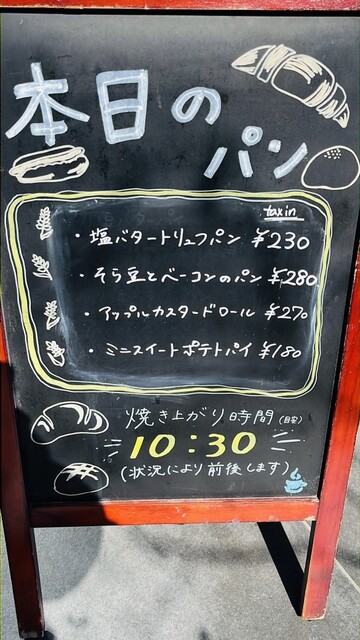 本日の
パン
tax in
・塩バタートリュフパン ¥230
・そら豆とベーコンのパン ¥280
・アップルカスタードロール ¥270
・ミニスイートポテトパイ ¥180
焼き上がり時間(目安)
10:30
(状況により前後します)